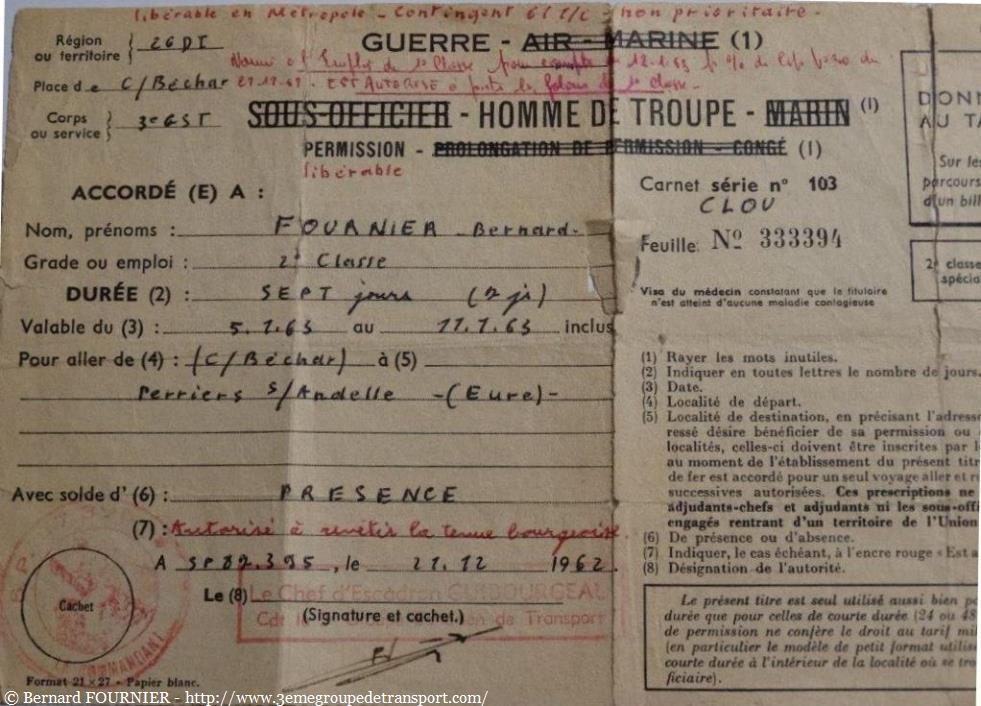 libérable en Métropole - Contingent 61 1/C - non prioritaire -
Région
ou territoire
26 DI
GUERRE - AIR - MARINE (1)
Nommé à l'Emploi de 1e Classe pour compter du 12.1.63
Place de C/Béchar
21.12.62. EST AUTORISÉ à porter les galons de 1e classe.
Corps
ou service
3e GST
SOUS-OFFICIER - HOMME DE TROUPE - MARIN (1)
PERMISSION - PROLONGATION DE PERMISSION - CONGÉ (1)
libérable
ACCORDÉ (E) A :
Nom, prénoms : FOURNIER Bernard-
Grade ou emploi : 2e Classe
DURÉE (2) : SEPT jours (7 js)
Valable du (3) : 5.1.63 au 11.1.63 inclus
Pour aller de (4) : (C/Béchar) à (5)
Perriers s/Andelle -(Eure)-
Avec solde d' (6) : PRESENCE
(7) : Autorisé à revêtir la tenue bourgeoise.
A SP 87.395, le 21.12 1962.
Le (8) Le Chef d'Escadron GUIBOURGEAU
de Transport
(Signature et cachet.)
Cachet
Format 21 × 27 - Papier blanc.
Carnet série n° 103
CLOU
Feuille: Nº 333394
Visa du médecin constatant que le titulaire
n'est atteint d'aucune maladie contagieuse
(1) Rayer les mots inutiles.
(2) Indiquer en toutes lettres le nombre de jours.
(3) Date.
(4) Localité de départ.
(5) Localité de destination, en précisant l'adresse
ressé désire bénéficier de sa permission ou
localités, celles-ci doivent être inscrites par l
au moment de l'établissement du présent titr
de fer est accordé pour un seul voyage aller et r
successives autorisées. Ces prescriptions ne
adjudants-chefs et adjudants ni les sous-offi
engagés rentrant d'un territoire de l'Union
(6) De présence ou d'absence.
(7) Indiquer, le cas échéant, à l'encre rouge « Est a
(8) Désignation de l'autorité.
Le présent titre est seul utilisé aussi bien p
durée que pour celles de courte durée (24 ou 48
de permission ne confère le droit au tarif mil
(en particulier le modèle de petit format utilis
courte durée à l'intérieur de la localité où se tro
ficiaire).
DONN
AU TA
Sur les
parcours
d'un bill
2e classe
spécia
© Bernard FOURNIER - http://www.3emegroupedetransport.com/